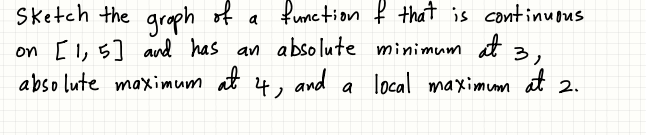 Sketch the graph of a function f that is continuous
on [1, 5] and has an absolute minimum at 3,
absolute maximum at 4, and a local maximum at 2.